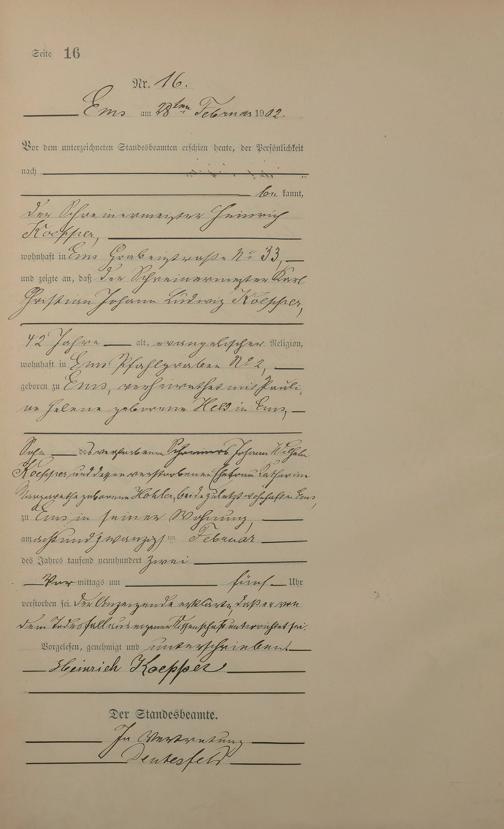 Seite 16
Nr. 16.
Ems am 28ten Februar 1902.
Vor dem unterzeichneten Standesbeamten erschien heute, der Persönlichkeit
nach
be kannt,
der Schreinermeister Heinrich
Koepper,
wohnhaft in Ems Grabenstraße No 33,
und zeigte an, daß der Schreinermeister Karl
Christian Johann Ludwig Koepper,
42 Jahre alt, evangelischer Religion,
wohnhaft in Ems Pfahlgraben No 2,
geboren zu Ems, verheirathet mit Pauli-
ne Helene geborene Held in Ems,
Sohn des verstorbenen Schreiners Johann Wilhelm
Koepper und dessen verstorbenen Ehefrau Katharine
Margarethe geborene beide zuletzt wohnhaft in Ems,
zu Ems in seiner Wohnung,
am acht und zwanzigsten Februar
des Jahres tausend neunhundert zwei
Vor mittags um fünf Uhr
verstorben sei. Der Anzeigende erklärte, daß er von
dem Todesfall aus eigener Wissenschaft unterrichtet sei.
Vorgelesen, genehmigt und unterschrieben.
Heinrich Koepper
Der Standesbeamte.
In Vertretung